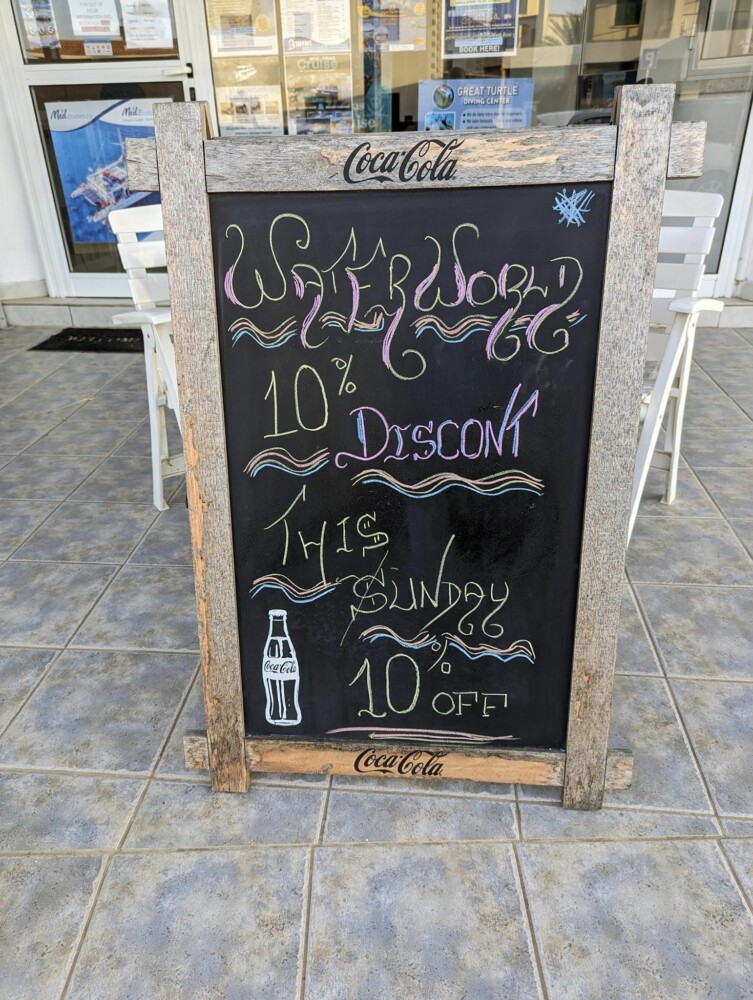 BOOK HERE!
Cruise
GREAT TURTLE
DIVING CENTER
Coca-Cola
WATERWORLD
10%
DISCONT
THIS
SUNDAY
Coca-Cola
10%
OFF
Coca-Cola